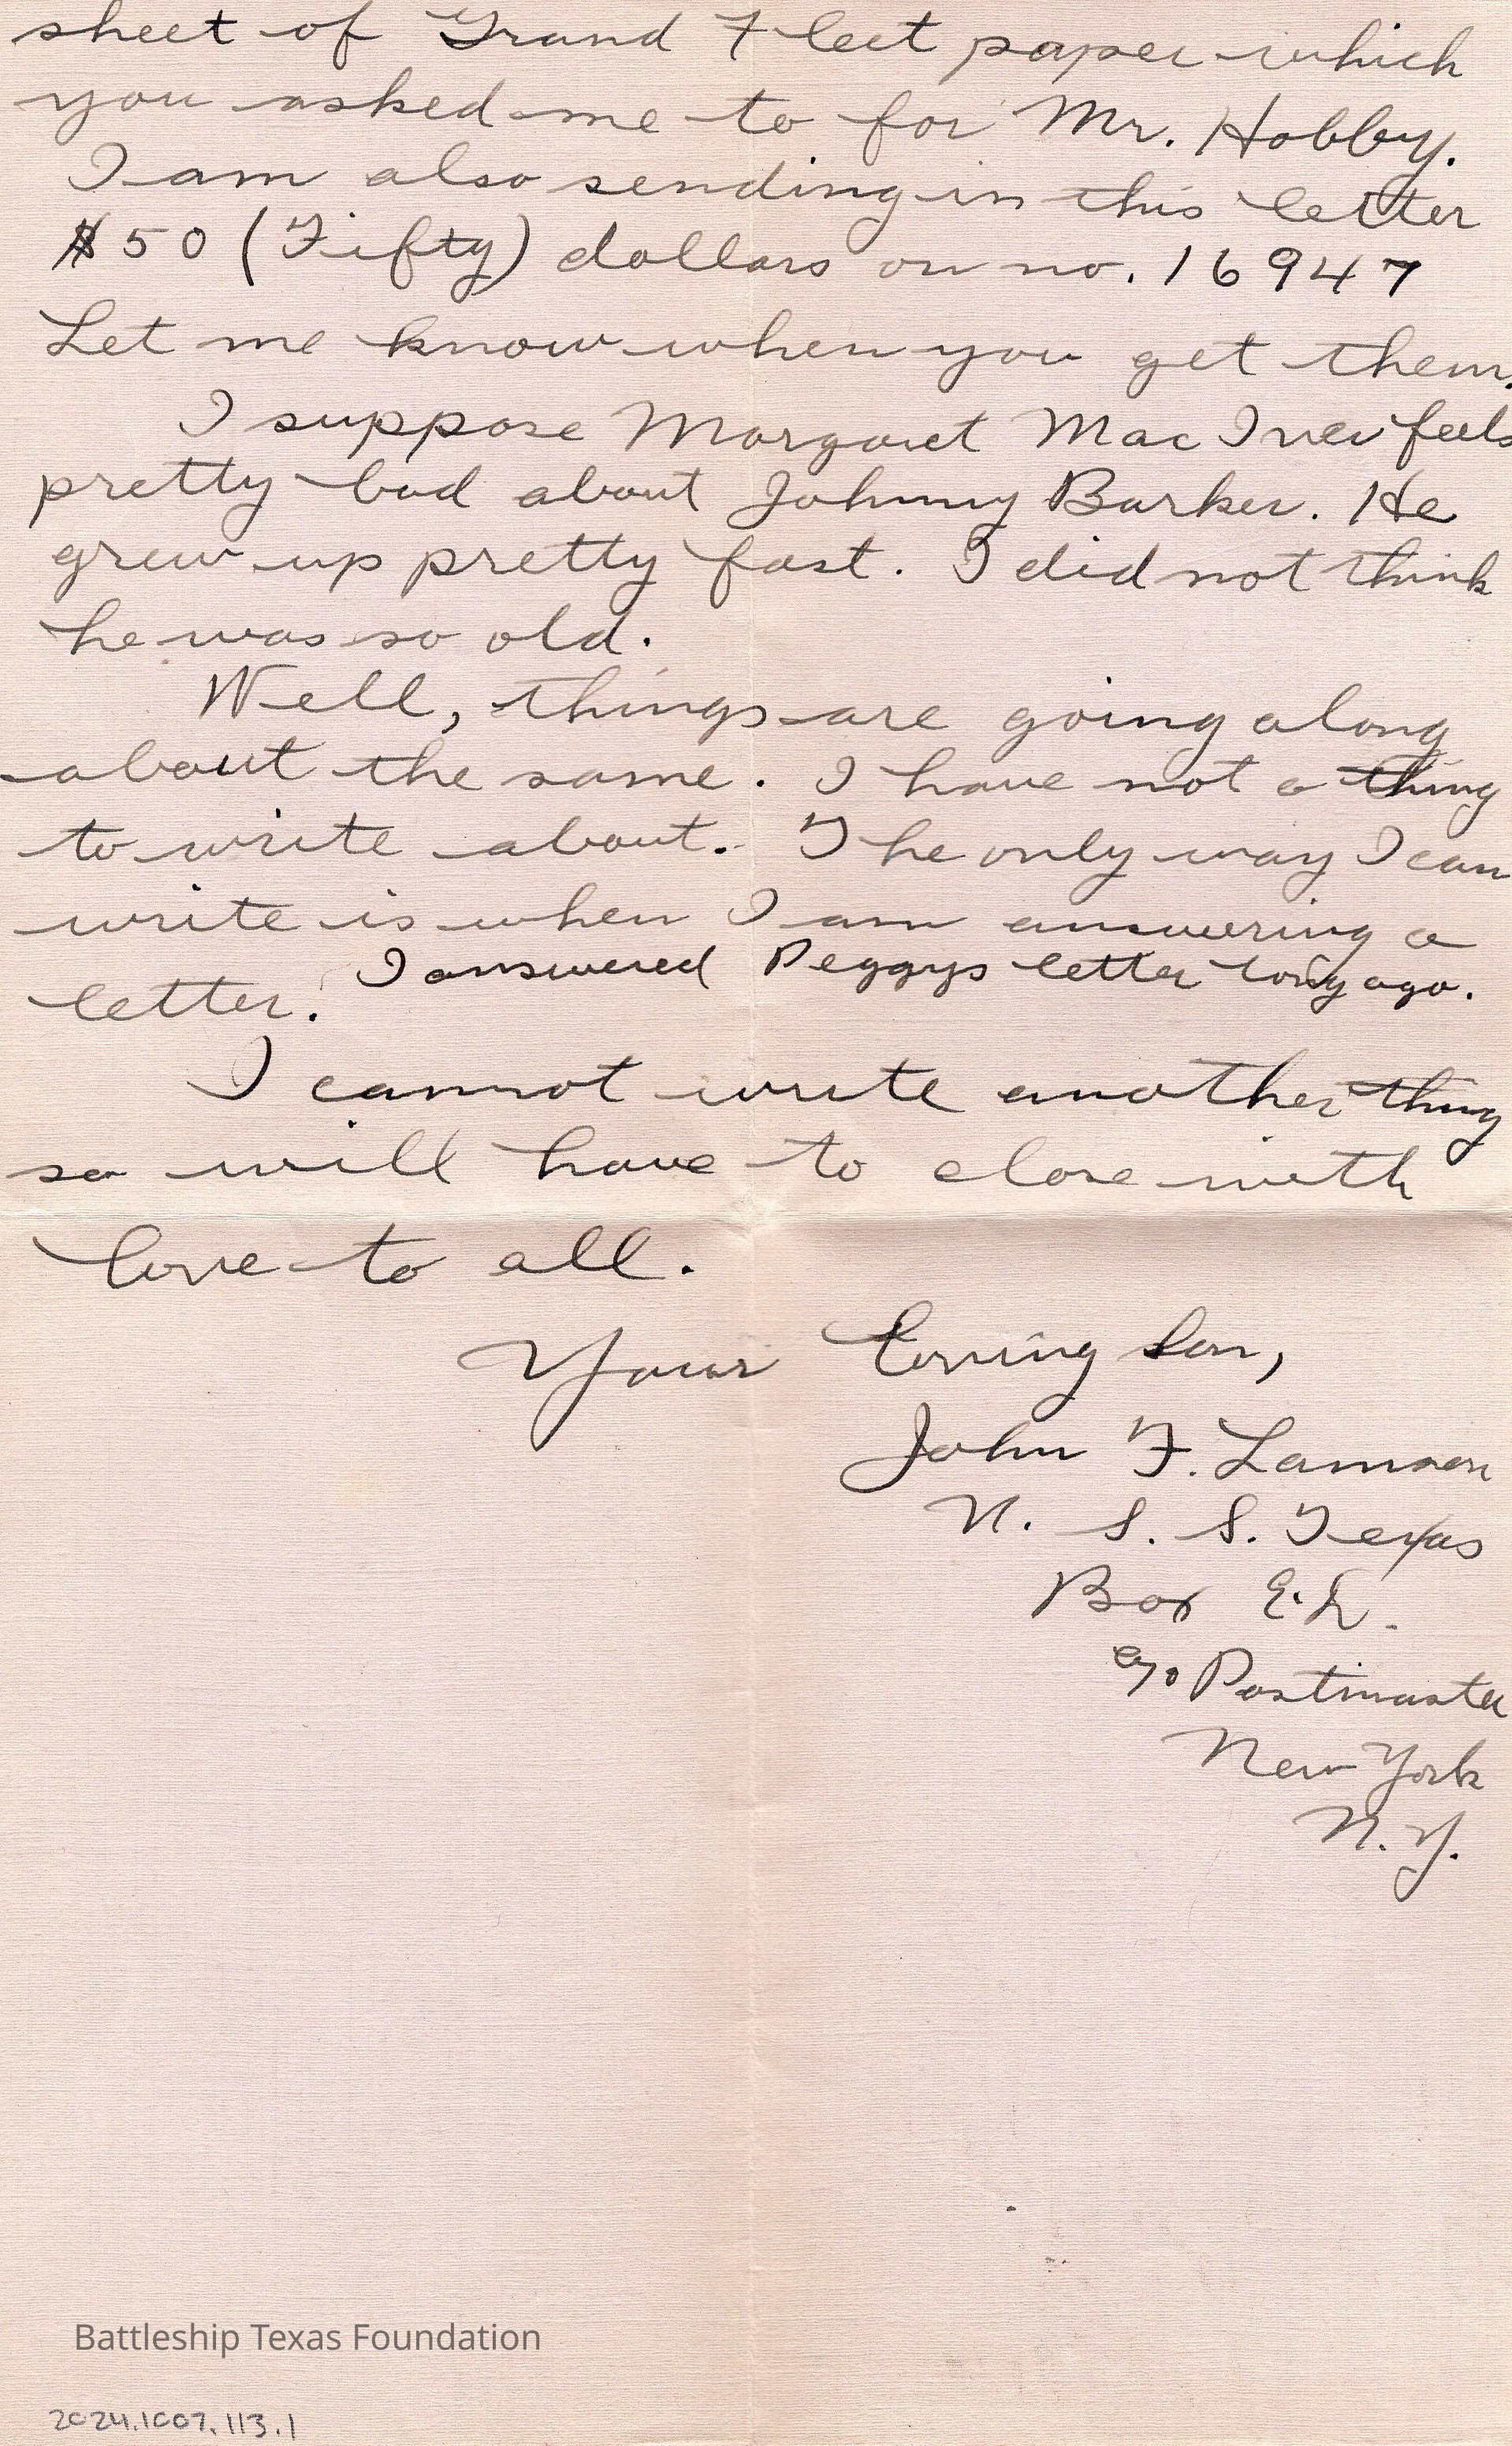 sheet of Grand Fleet paper which
you asked me to for Mr. Hobby.
I am also sending in this letter
$50 (Fifty) dollars on no. 16947
Let me know when you get them.
I suppose Margaret Mac feels
pretty bad about Johnny Barker. He
grew up pretty fast. I did not think
he was so old.
Well, things are going along
about the same. I have not a thing
to write about. The only way I can
write is when I am answering a
letter. I answered Peggys letter long ago.
I cannot write another thing
so will have to close with
love to all.
Your loving son,
John F. Lamson
S. S. Texas
Box
c/o Postmaster
New York
N.Y.
Battleship Texas Foundation
2024.1007.113.1